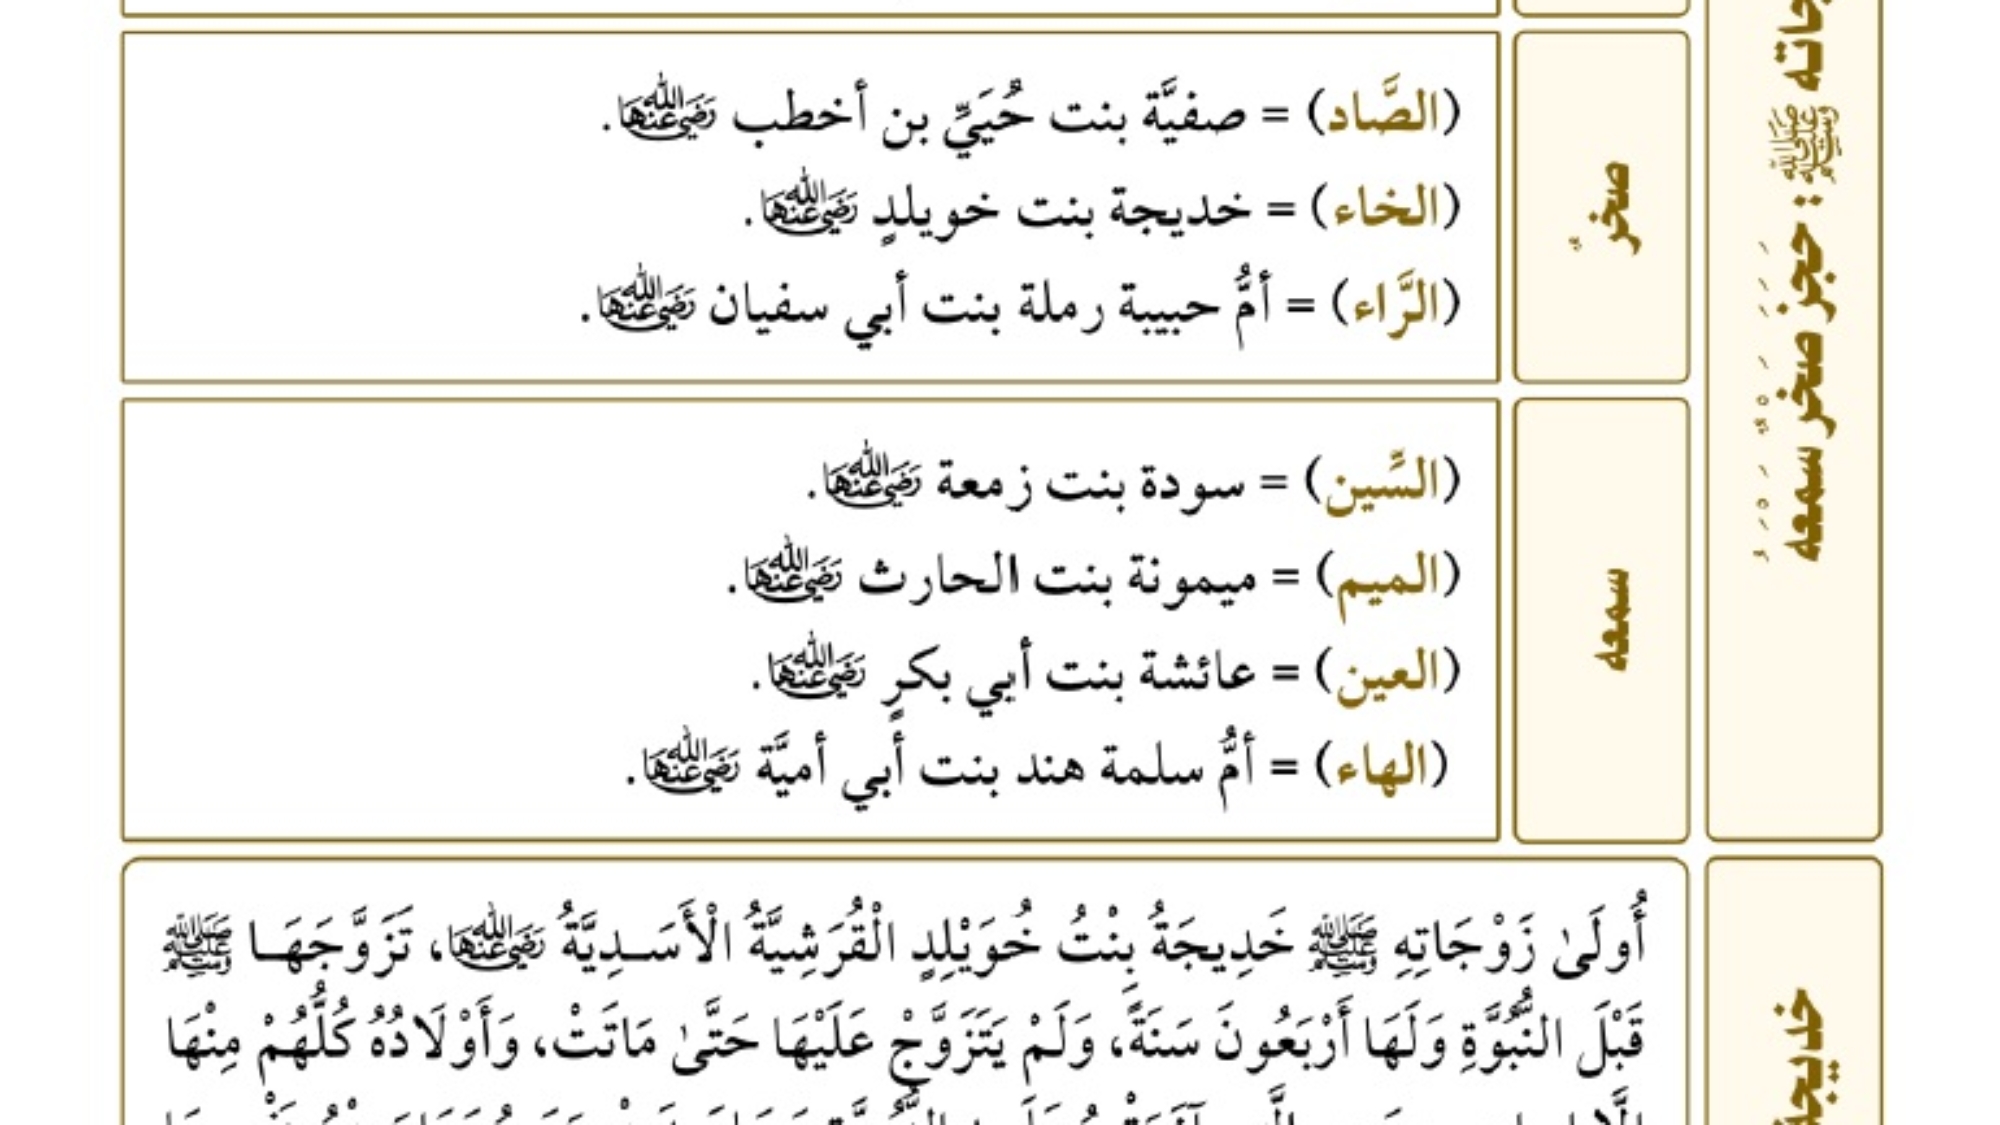 (الصَّاد) = صفيَّة بنت حُيَيِّ بن أخطب رَضِيَ اللَّهُ عَنْهَا.
(الخاء) = خديجة بنت خويلدٍ رَضِيَ اللَّهُ عَنْهَا.
(الرَّاء) = أمُّ حبيبة رملة بنت أبي سفيان رَضِيَ اللَّهُ عَنْهَا.
صخرٌ
ﷺ: حجز صخر سمعه
(السِّين) = سودة بنت زمعة رَضِيَ اللَّهُ عَنْهَا.
(الميم) = ميمونة بنت الحارث رَضِيَ اللَّهُ عَنْهَا.
(العين) = عائشة بنت أبي بكرٍ رَضِيَ اللَّهُ عَنْهَا.
(الهاء) = أمُّ سلمة هند بنت أبي أميَّة رَضِيَ اللَّهُ عَنْهَا.
سمعه
أُولَىٰ زَوْجَاتِهِ ﷺ خَدِيجَةُ بِنْتُ خُوَيْلِدٍ الْقُرَشِيَّةُ الْأَسَدِيَّةُ رَضِيَ اللَّهُ عَنْهَا، تَزَوَّجَهَا ﷺ
قَبْلَ النُّبُوَّةِ وَلَهَا أَرْبَعُونَ سَنَةً، وَلَمْ يَتَزَوَّجْ عَلَيْهَا حَتَّىٰ مَاتَتْ، وَأَوْلَادُهُ كُلُّهُمْ مِنْهَا
خديجة